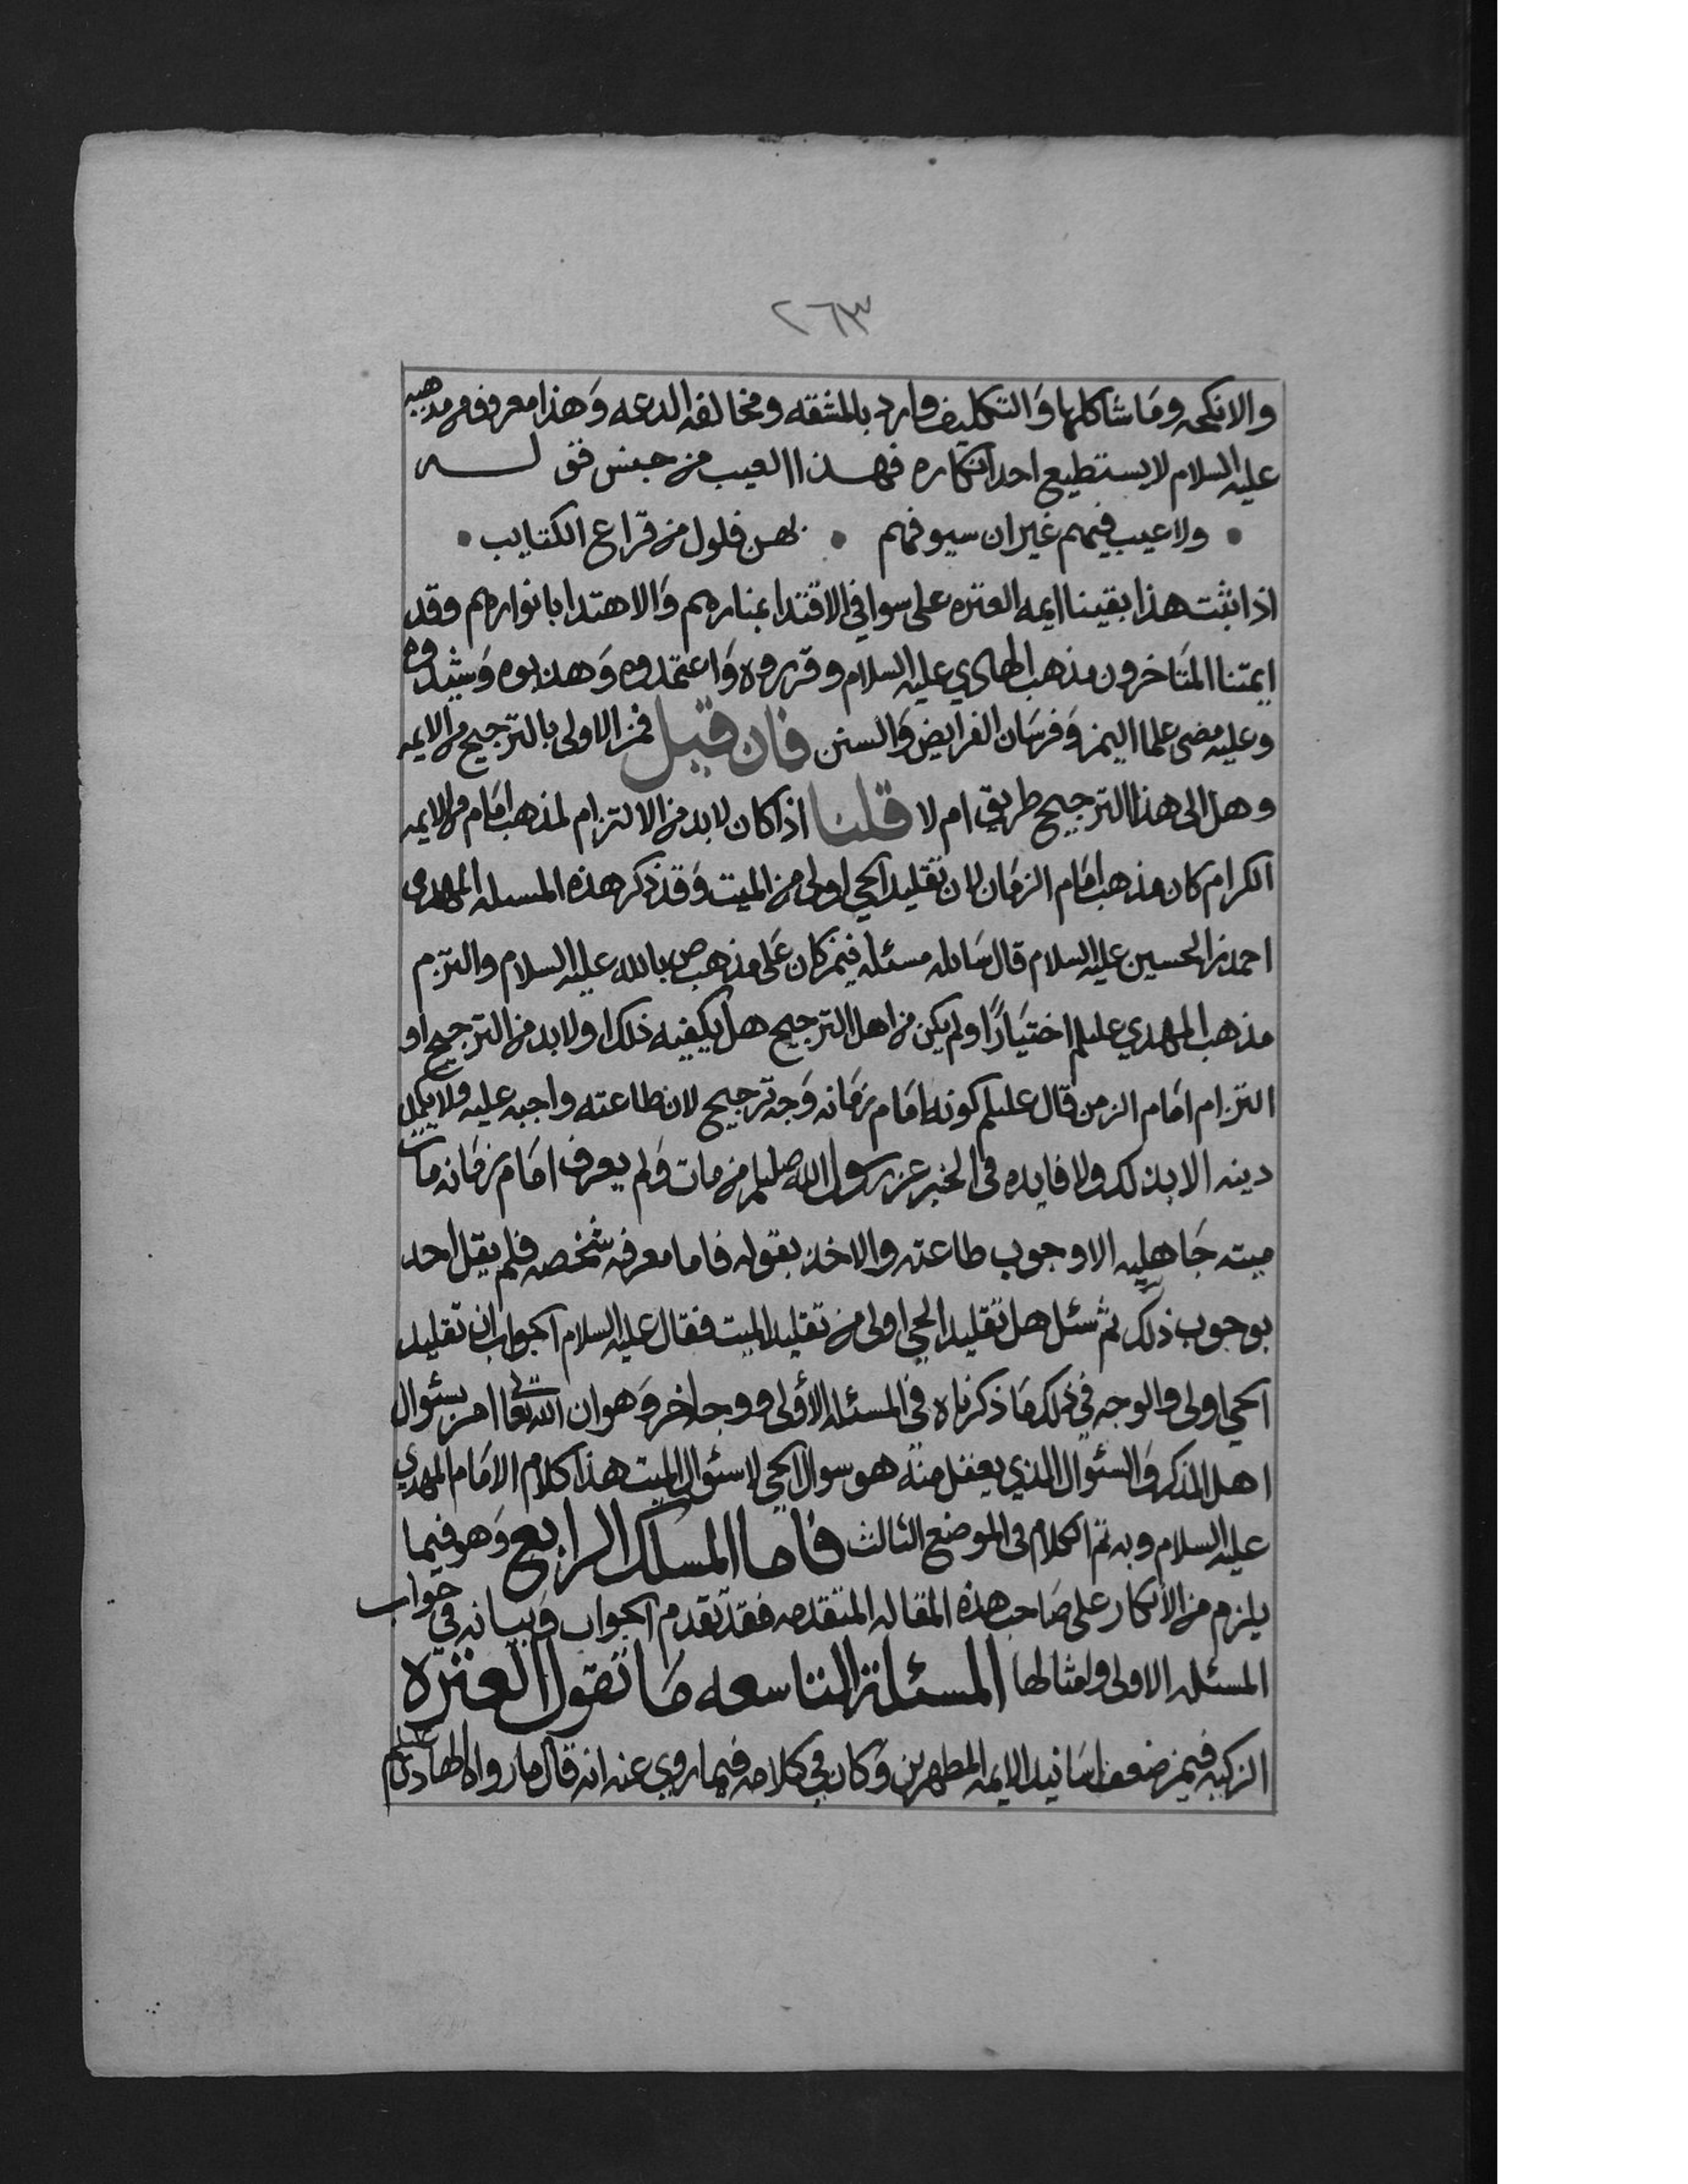 ٢٦٣
والانكحه وما شاكلها والتكليف وارد بالمشقه ومخالفه الدعه وهذا معروف من مذهبه
عليه السلام لا يستطيع احد انكاره فهـــذا العيب من جنس قو لــــه
• ولا عيب فيهم غير ان سيوفهم • بهن فلول من قراع الكتايب •
اذا ثبت هذا بقينا ايمه العتره على سوا في الاقتدا بمنارهم والاهتدا بانوارهم وقد
ايمتنا المتاخرون مذهب الهادي عليه السلام وقرروه واعتمدوه وهذبوه وشيدوه
وعليه مضى علما اليمن وفرسان الفرايض والسنن فان قيل فمن الاولى بالترجيح من الايمه
وهل الى هذا الترجيح طريق ام لا قلنا اذا كان لابد من الالتزام لمذهب امام من الايمه
الكرام كان مذهب امام الزمان لان تقليد الحي اولى من الميت وقد ذكر هذه المسله المهدى
احمد بن الحسين عليه السلام قال سايله مسئله فيمن كان على مذهب ص بالله عليه السلام والتزم
مذهب المهدي عليلم اختيارًا ولم يكن من اهل الترجيح هل يكفيه ذلك او لابد من الترجيح او
التزام امام الزمن قال عليلم كونه امام زمانه وجه ترجيح لان طاعته واجبه عليه ولا يكمل
دينه الا بذلك ولا فايده فى الخبر عن رسول الله صليلم من مات ولم يعرف امام زمانه مات
ميته جاهليه الا وجوب طاعته والاخذ بقوله فاما معرفه شخصه فلم يقل احد
بوجوب ذلك ثم سئل هل تقليد الحي اولى من تقليد الميت فقال عليه السلام الجواب ان تقليد
الحي اولى والوجه في ذلك ما ذكرناه في المسئله الأولى ووجه اخر وهو ان الله تعالى امر بسئوال
اهل الذكر والسئوال الذي يعقل منه هو سوال الحي لا سئوال الميت هذا كلام الامام المهدي
عليه السلام وبه تم الكلام فى الموضع الثالث فاما المسلك الرابع وهو فيما
يلزم من الانكار على صاحب هذه المقاله المتقدمه فقد تقدم الجواب وبيانه في جواب
المسئله الاولى وامثالها المسئلة التاسعه ما تقول العتره
الزكيه فيمن ضعف اسانيد الايمه المطهرين وكان في كلامه فيما روي عنه انه قال ما رواه الهادى عليلم